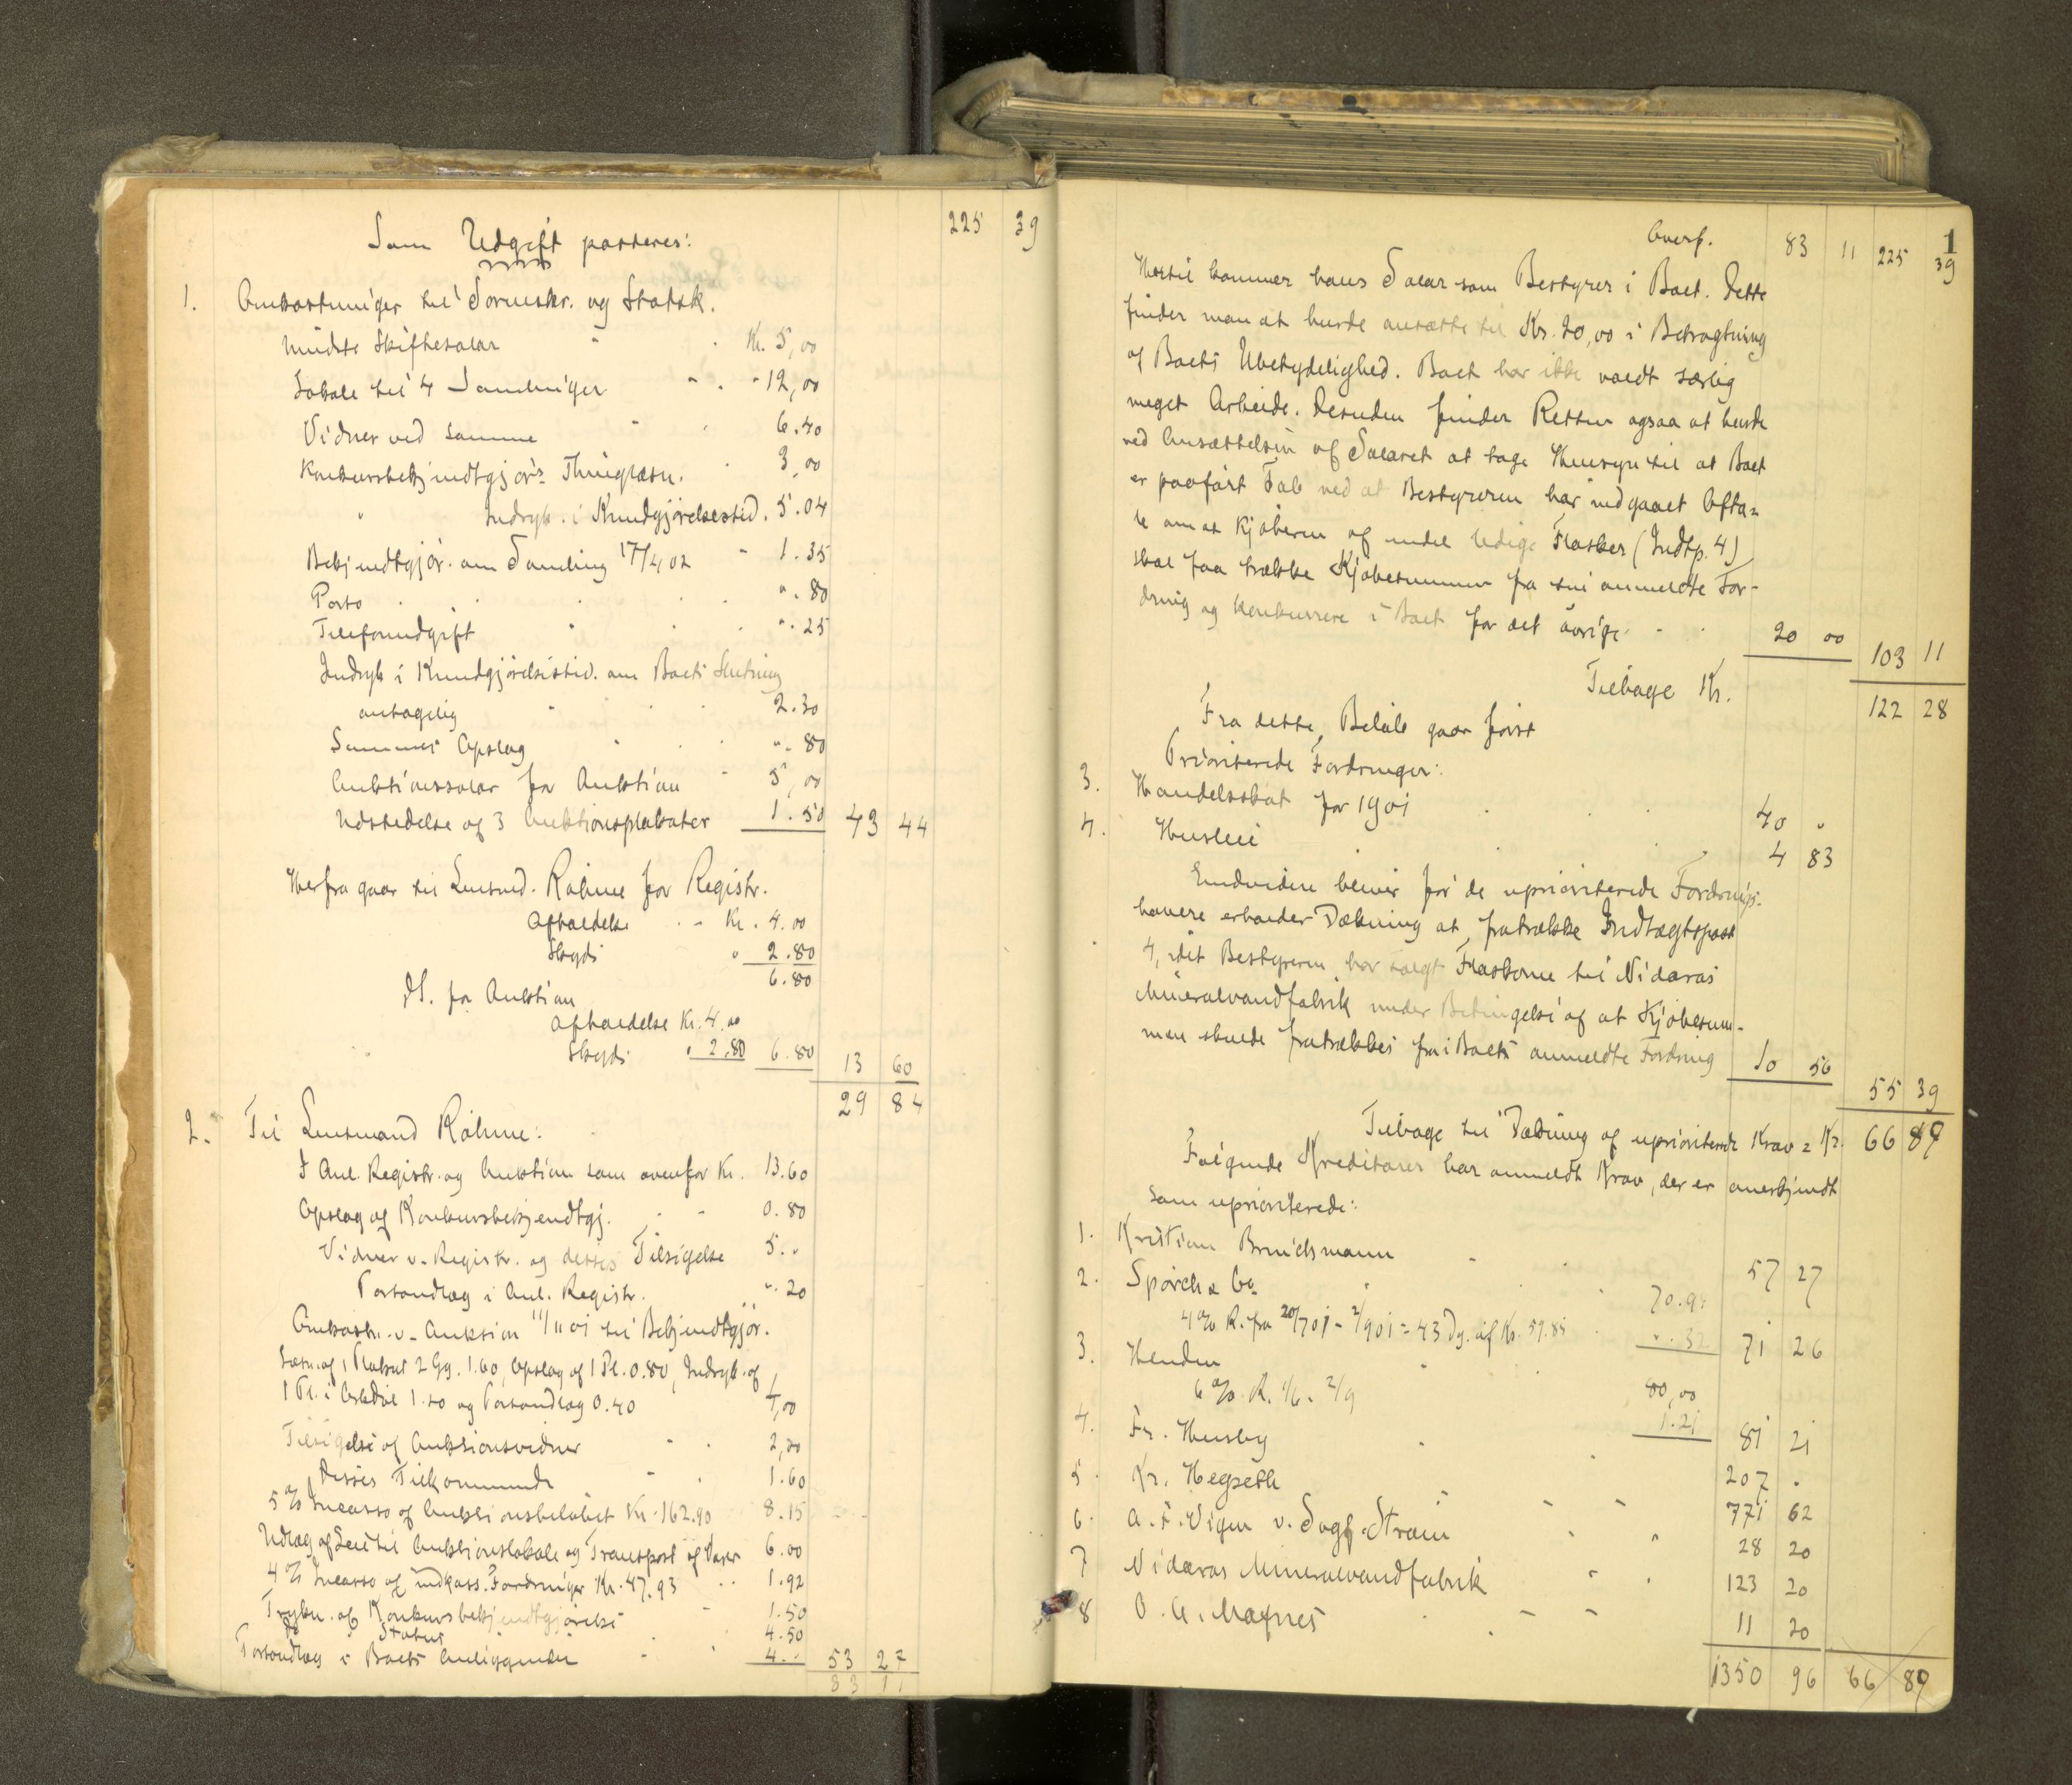 225 39
Som Udgift posteres:
1. Omkostninger til Sorenskr. og Statsk.
Mindste Skiftesalar Kr. 5,00
Lokale til 4 Samlinger " 12,00
Vidner ved samme 6.40
Konkursbekjendtgjør's Thinglæsn. 3,00
" Indryk. i Kundgjørelsestid. 5.04
Bekjendtgjør. om Samling 17/4 02 1.35
Porto ". 80
Telefonudgift ". 25
Indryk i Kundgjørelsestid. om Boets Slutning
antagelig 2.30
Sammes Opslag ". 80
Auktionssalar for Auktion 5,00
Udstedelse af 3 Auktionsplakater 1.50 43 44
Herfra gaar til Lensmd. Røhme for Registr.
Afholdelse Kr. 4.00
Skyds " 2.80
6.80
Do. for Auktion
Afholdelse Kr. 4.00
Skyds " 2.80 6.80 13 60
29 84
2. Til Lensmand Røhme:
I Anl. Registr. og Auktion som ovenfor Kr. 13.60
Opslag af Konkursbekjendtgj. 0.80
Vidner v. Registr. og deres Tilsigelse 5."
Forsendlæg i Anl. Registr. ". 20
Omkostn. v. Auktion 11/11 01 til Bekjendtgjør.
Læsn. af 1 Plakat 2 Gg. 1.60, Opslag af 1 Pl. 0.80, Indryk. af
1 Pl. i 1.20 og 0.40 4,00
Tilsigelse af Auktionsvidner 2,20
Disses Tilkommende 1.60
5 % Incasso af Auktionsbeløbet Kr. 162.90 8.15
Udlæg af Leie til Auktionslokale og Transport af Varer 6.00
4 % Incasso af indkass. Fordringer Kr. 47.93 1.92
Trykn. af Konkursbekjendtgjørelse 1.50
do Status 4.50
i Boets Anliggender 4." 53 27
83 11
1
Overf. 83 11 225 39
Hertil kommer hans Salar som Bestyrer i Boet. Dette
finder man at burde ansætte til Kr. 20,00 i Betragtning
af Boets Ubetydelighed. Boet har ikke voldt særlig
meget Arbeide. Desuden finder Retten ogsaa at burde
ved Ansættelsen af Salaret at tage Hensyn til at Boet
er paaført Tab ved at Bestyreren har indgaaet Afta-
le om at Kjøberen af endel ledige Flasker (Indtp. 4)
skal faa trække Kjøbesummen fra sin anmeldte For-
dring og konkurrere i Boet for det øvrige 20 00 103 11
Tilbage Kr. 122 28
Fra dette Beløb gaar først
Prioriterede Fordringer:
3. Handelsskat for 1901 40 "
4. Husleie 4 83
Endvidere bliver før de uprioriterede Fordrings-
havere erholder Dækning at fratrække Indtægtspost
4, idet Bestyreren har solgt Flaskerne til Nidaros
Mineralvandfabrik under Betingelse af at Kjøbesum-
men skulde fratrækkes fra i Boets anmeldte Fordring 10 56 55 39
Tilbage til Dækning af uprioriterede Krav = Kr. 66 89
Følgende Kreditorer har anmeldt Krav, der er anerkjendt
som uprioriterede:
1. Kristian Bruichsmann 57 27
2. Spørck & Co. 70.94
4 % R. fra 20/7 01 - 2/9 01 = 43 Dg. af Kr. 59.85 ". 32 71 26
3. Henden 80,00
6 % R. 1/6 - 2/9 1.21 81 21
4. Fr. Husby 207 "
5. Kr. Hegseth 771 62
6. A. F. Vigen v. Sagf. Strøm 28 20
7 Nidaros Mineralvandfabrik 123 20
8 O. A. Mæfnes 11 20
1350 96 66 89